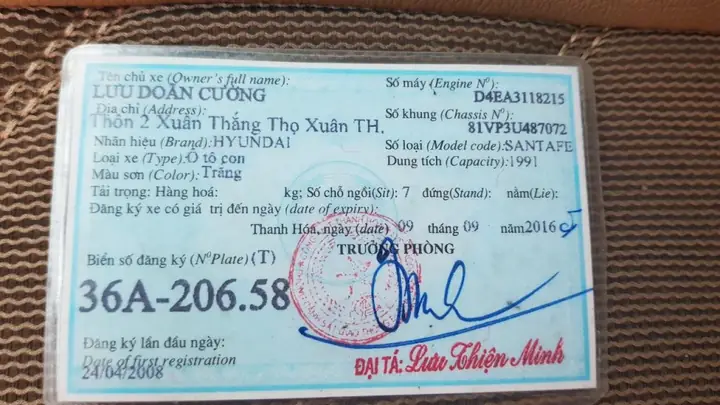 Tên chủ xe (Owner's full name):
LƯU DOÃN CƯỜNG
Địa chỉ (Address):
Thôn 2 Xuân Thắng Thọ Xuân TH.
Nhãn hiệu (Brand): HYUNDAI
Loại xe (Type): Ô tô con
Màu sơn (Color): Trắng
Số máy (Engine Nº):
D4EA3118215
Số khung (Chassis Nº):
81VP3U487072
Số loại (Model code): SANTAFE
Dung tích (Capacity): 1991
Tải trọng: Hàng hoá: kg; Số chỗ ngồi(Sit): 7 đứng(Stand): nằm(Lie):
Đăng ký xe có giá trị đến ngày (date of expiry):
Thanh Hóa, ngày (date) 09 tháng 09 năm 2016
TRƯỞNG PHÒNG
Biển số đăng ký (NºPlate) (T)
36A-206.58
Đăng ký lần đầu ngày:
Date of first registration
24/04/2008
ĐẠI TÁ: Lưu Thiện Minh